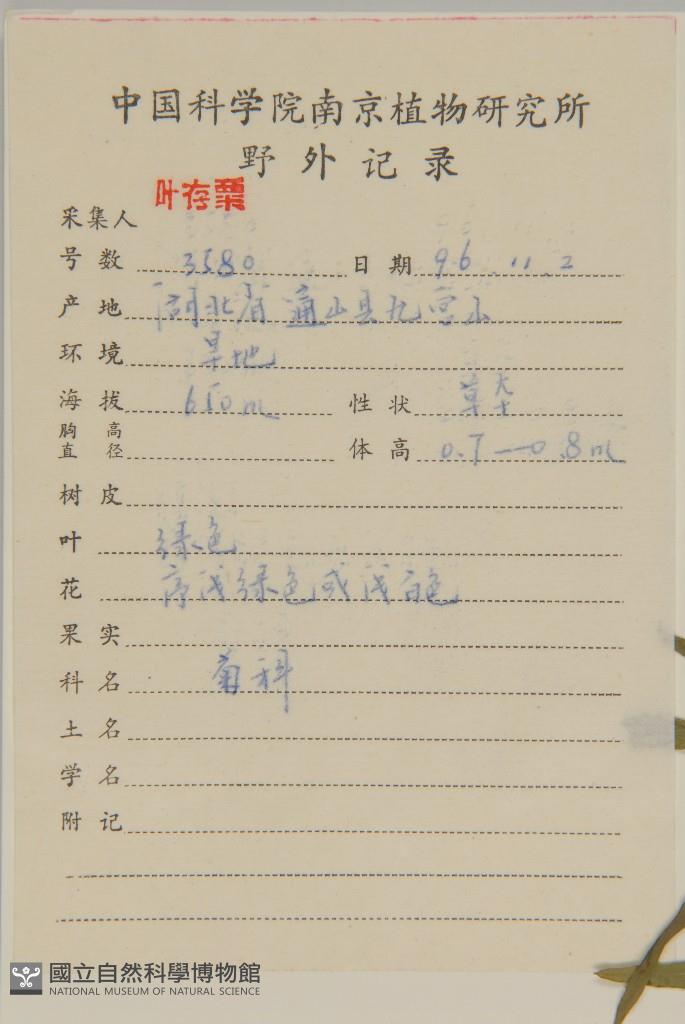 中国科学院南京植物研究所
野外记录
叶存粟
采集人
号数 3580 日期 96.11.2
产地 湖北省通山县九宫山
环境 旱地
海拔 650m 性状 草本
胸高直径 体高 0.7—0.8m
树皮
叶 绿色
花 序浅绿色或浅白色
果实
科名 菊科
土名
学名
附记
國立自然科學博物館
NATIONAL MUSEUM OF NATURAL SCIENCE